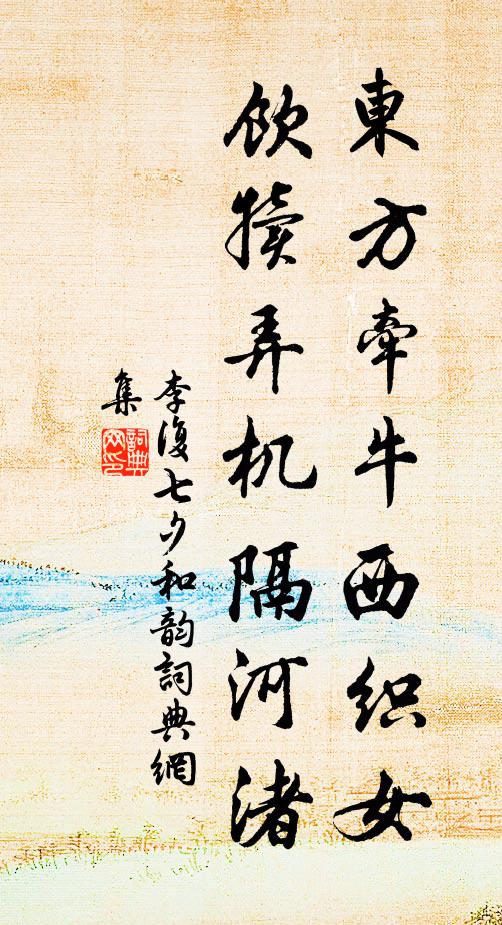 東方牽牛西织女
飲犢弄机隔河渚
李復七夕和韵詞典網
集
詞典网印